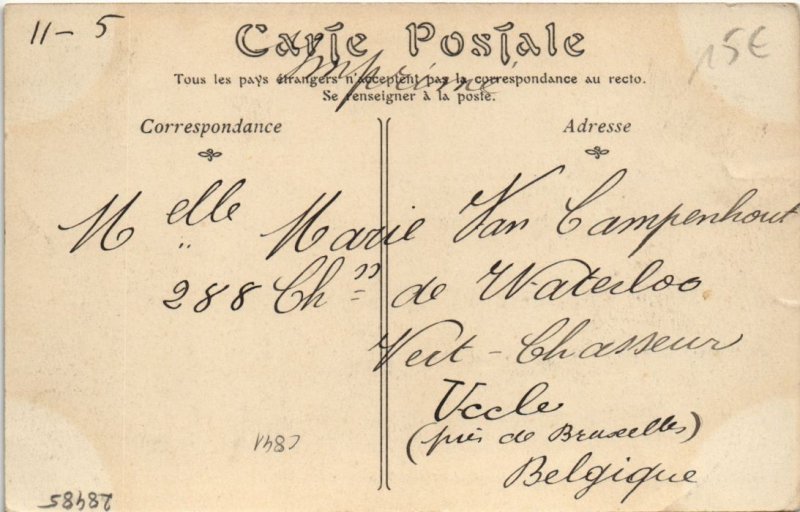 11 - 5
15€
Carte Postale
Imprimé
Tous les pays étrangers n'acceptent pas la correspondance au recto.
Se renseigner à la poste.
Correspondance
Adresse
Melle Marie Van Campenhout
288 Chée de Waterloo
Vert - Chasseur
Uccle
(près de Bruxelles)
Belgique
C841
28485